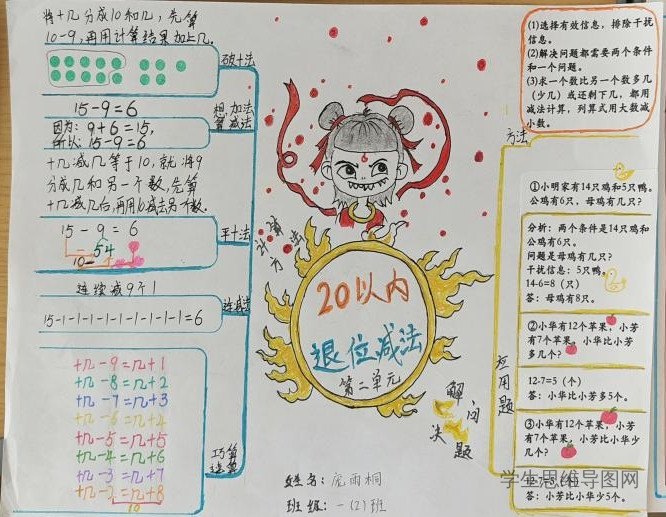 将十几分成10和几，先算
10-9，再用计算结果加上几。
破十法
15-9=6
想加法
算减法
因为：9+6=15，
所以：15-9=6
十几减几等于10，就将9
分成几和另一个数，先算
十几减几后，再用10减去另个数。
平十法
15-9=6
54
10-
连续减9个1
连减法
15-1-1-1-1-1-1-1-1-1=6
十几-9=几+1
十几-8=几+2
十几-7=几+3
十几-6=几+4
十几-5=几+5
十几-4=几+6
十几-3=几+7
十几-2=几+8
10
巧算
速算
计算
方法
20以内
退位减法
第二单元
解决
问题
姓名：庞雨桐
班级：一(2)班
(1)选择有效信息，排除干扰
信息。
(2)解决问题都需要两个条件
和一个问题。
(3)求一个数比另一个数多几
（少几）或还剩下几，都用
减法计算，列算式用大数减
小数。
方法
①小明家有14只鸡和5只鸭。
公鸡有6只，母鸡有几只？
分析：两个条件是14只鸡和
公鸡有6只。
问题是母鸡有几只？
干扰信息：5只鸭。
14-6=8（只）
答：母鸡有8只。
②小华有12个苹果，小芳
有7个苹果，小华比小芳
多几个？
应用题
12-7=5（个）
答：小华比小芳多5个。
③小华有12个苹果，小芳
有7个苹果，小芳比小华少
几个？
12-7=5（个）
答：小芳比小华少5个。
学生思维导图网